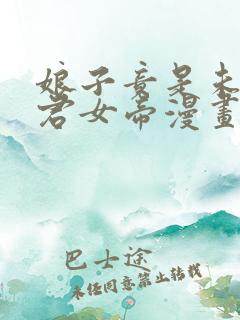 娘子竟是未
君女帝漫畫
巴士途
未任同意禁止转载